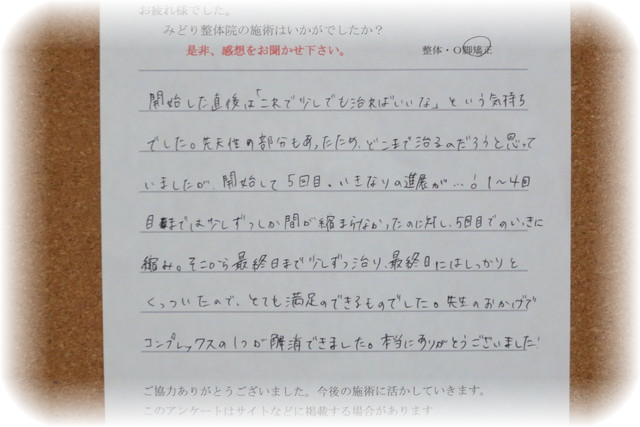 お疲れ様でした。
みどり整体院の施術はいかがでしたか？
是非、感想をお聞かせ下さい。
整体・O脚矯正
開始した直後は「これで少しでも治ればいいな」という気持ち
でした。先天性の部分もあったため、どこまで治るのだろうと思って
いましたが、開始して5回目、いきなりの進展が…！1～4回
目までは少しずつしか間が縮まらなかったのに対し、5回目でのいっきに
縮み。そこから最終日まで少しずつ治り、最終日にはしっかりと
くっついたので、とても満足のできるものでした。先生のおかげで
コンプレックスの1つが解消できました。本当にありがとうございました！
ご協力ありがとうございました。今後の施術に活かしていきます。
このアンケートはサイトなどに掲載する場合があります